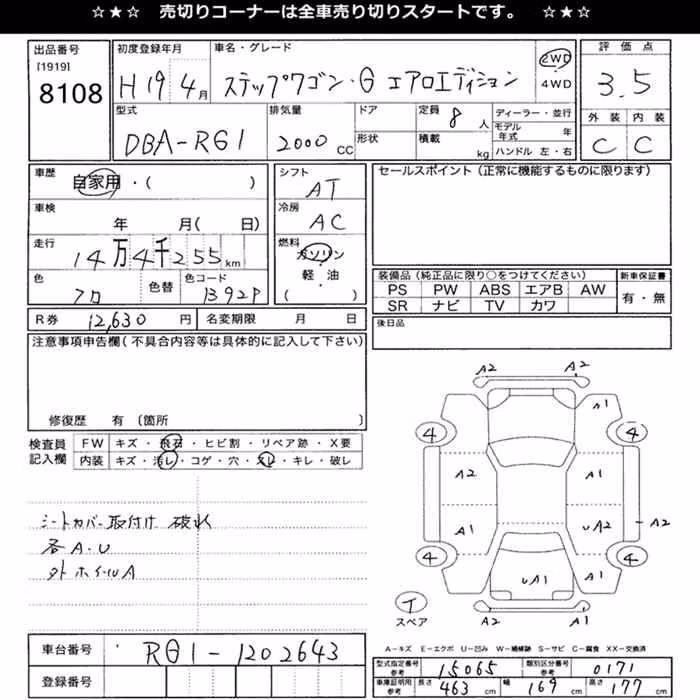 ☆★☆ 売切りコーナーは全車売り切りスタートです。 ☆★☆
出品番号
[1919]
8108
初度登録年月
H19年4月
車名・グレード
ステップワゴン・G エアロエディション
2WD
4WD
評価点
3.5
外装 内装
C C
型式
DBA-RG1
排気量
2000 CC
ドア
形状
定員 8 人
積載 kg
ディーラー・並行
モデル年式 年
ハンドル 左・右
車歴
自家用・( )
車検
年 月( 日)
走行
14万4千255km
色
クロ
色替
色コード
B92P
シフト
AT
冷房
AC
燃料
ガソリン
軽・油
( )
セールスポイント(正常に機能するものに限ります)
装備品(純正品に限り○をつけてください)
PS PW ABS エアB AW
SR ナビ TV カワ
新車保証書
有・無
R券 12,630 円 名変期限 月 日
後日品
注意事項申告欄(不具合内容等は具体的に記入して下さい)
修復歴 有 〔箇所 〕
検査員記入欄
FW キズ・飛石・ヒビ割・リペア跡・X要
内装 キズ・汚レ・コゲ・穴・スレ・キレ・破レ
シートカバー取付け 破れ
各A・U
外ホイールA
A2 A2
A1
4 4
A2 A1
A1 UA2 A2
4 4
UA1 A1
A2 A1
T
スペア
A-キズ E-エクボ U-凹み W-補修跡 S-サビ C-腐食 XX-交換済
車台番号 RG1-1202643
登録番号
型式指定番号 参考 15065 類別区分番号 参考 0171
車庫証明用 参考 長さ 463 cm 幅 169 cm 高さ 177 cm